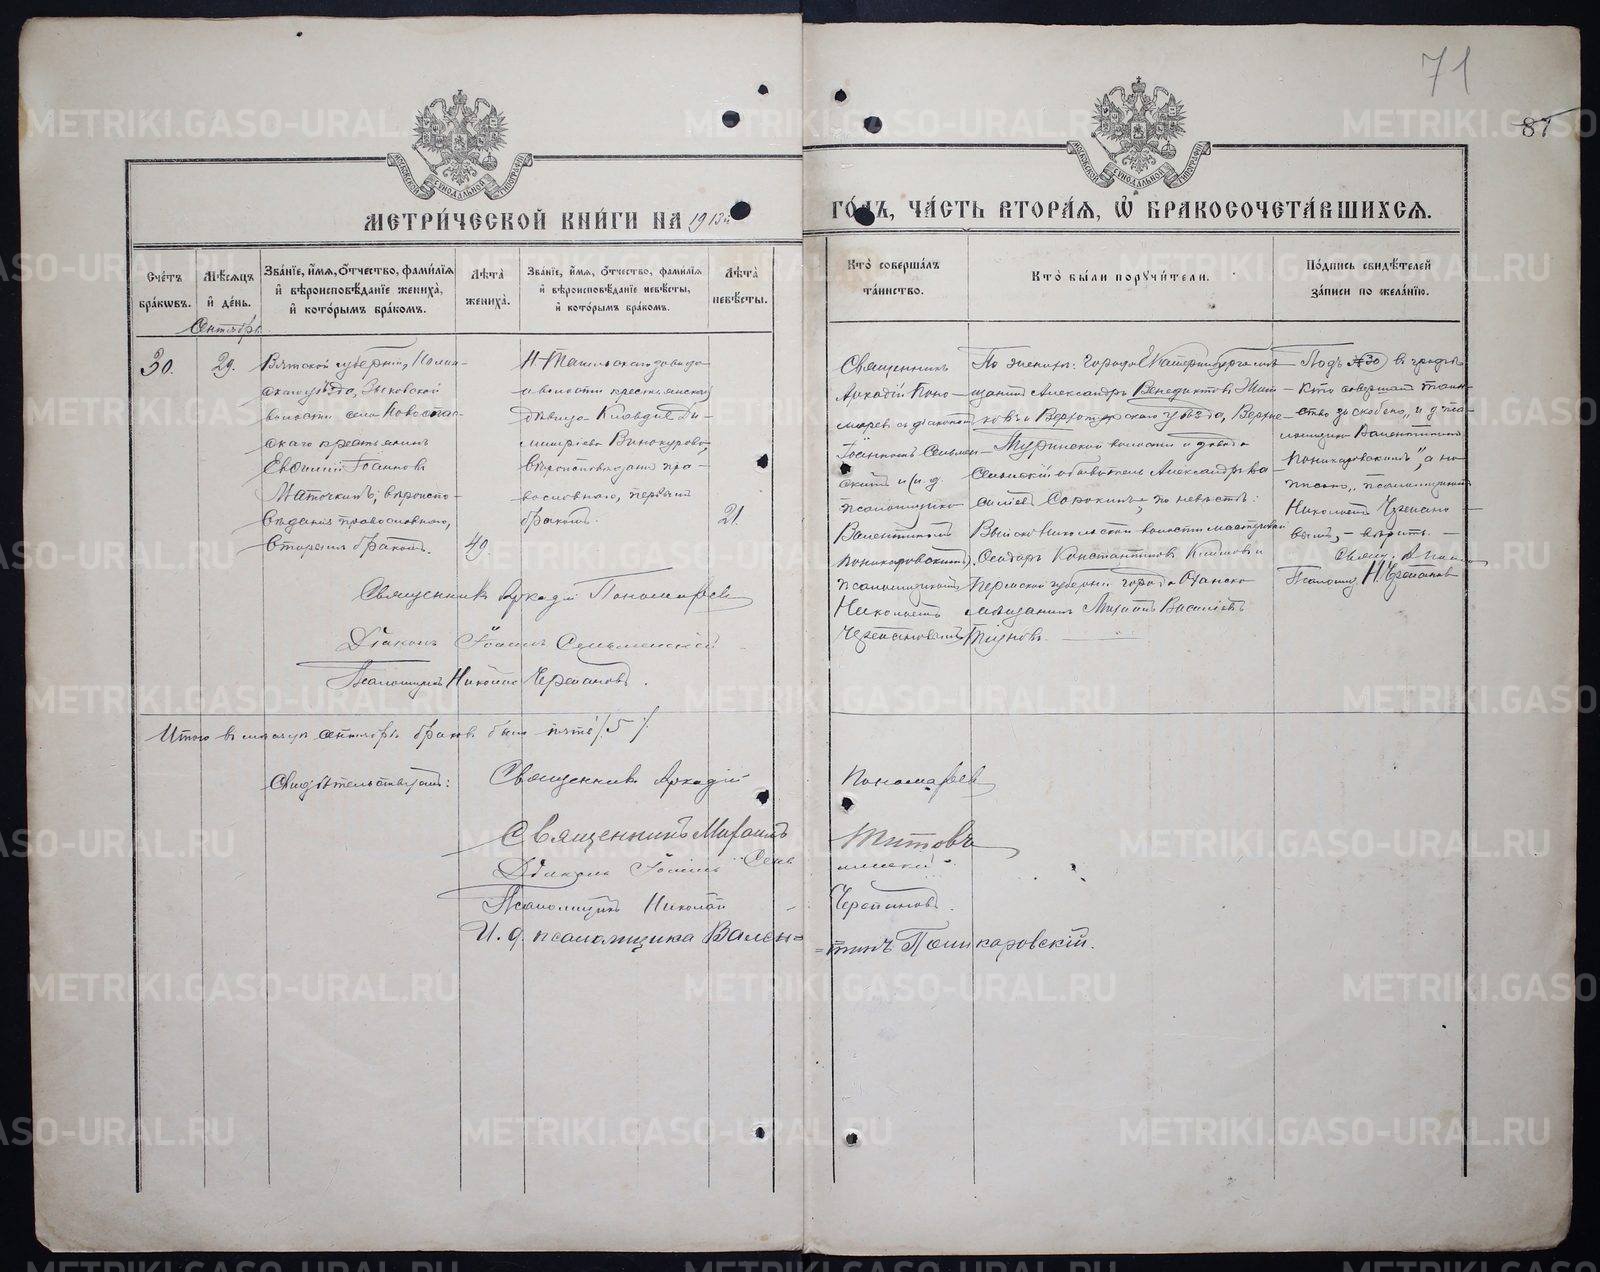 71
87
МОСКОВСКОЙ СѴНОДАЛЬНОЙ ТИПОГРАФІИ
МОСКОВСКОЙ СѴНОДАЛЬНОЙ ТИПОГРАФІИ
МЕТРИ́ЧЕСКОЙ КНИ́ГИ НА 1913й
ГО́ДЪ, ЧА́СТЬ ВТОРА́Я, Ѽ БРАКОСОЧЕТА́ВШИХСЯ.
Сче́тъ бра́кѡвъ.
Мѣ́сяцъ и҆ де́нь.
Зва́нїе, и҆́мя, ѻ҆́тчество, фами́лїя и҆ вѣроисповѣ́данїе жениха̀, и҆ кото́рымъ бра́комъ.
Лѣ́та жениха̀.
Зва́нїе, и҆́мя, ѻ҆́тчество, фами́лїя и҆ вѣроисповѣ́данїе невѣ́сты, и҆ кото́рымъ бра́комъ.
Лѣ́та невѣ́сты.
Кто̀ соверша́лъ та́инство.
Кто̀ бы́ли порꙋчи́тели.
По́дпись свидѣ́телей за́писи по жела́нїю.
Сентябрь
30.
29.
Вятской губерніи,
скаго уѣзда, Зыковской
волости села Новоспас-
скаго крестьянин
Евѳимій Іоаннов
вѣроиспо-
вѣданія православнаго,
вторым браком.
49.
Н-Тагильскаго завода
и волости крестьянская
дѣвица Клавдія Ди-
митріева Винокурова,
вѣроисповѣданія пра-
вославнаго, первым
браком.
21.
Священник
Аркадій Поно-
марев с діаконом
Іоанном Сельмен-
ским и и. д.
псаломщика
Валентином
Поникаровским,
псаломщиком
Николаем
Черепановым
По жениху: города Екатеринбурга мѣ-
щанин Александр Венедиктов
и Верхотурскаго уѣзда, Верхне-
Туринской волости и завода
сельскій обыватель Александр Ва-
сильев Сорокин; по невѣстѣ:
волости
Сидор Константинов Климов и
Пермской губерніи города Оханска
мѣщанин Михаил Васильев
Под №30 в графѣ
Кто совершал таин-
ство за скобено, „и. д. пса-
ломщика Валентином
Поникаровским“, а на-
писано „псаломщиком
Николаем Черепано-
вым“, – вѣрить. –
Свящ. А. Пон
Псаломщ. Н. Черепанов
Священник Аркадій Пономарев
Діакон Іоанн Сельменскій
Псаломщик Николай Черепанов.
Итого в месяце сентябрѣ браков было пять /5/.
Свидѣтельствуют:
Священник Аркадій Пономарев
Священникъ Михаилъ Титовъ
Діакон Іоанн Сель
менскій
Псаломщик Николай Черепанов.
И. д. псаломщика Вален=
=тинъ Поникаровскій.
METRIKI.GASO-URAL.RU